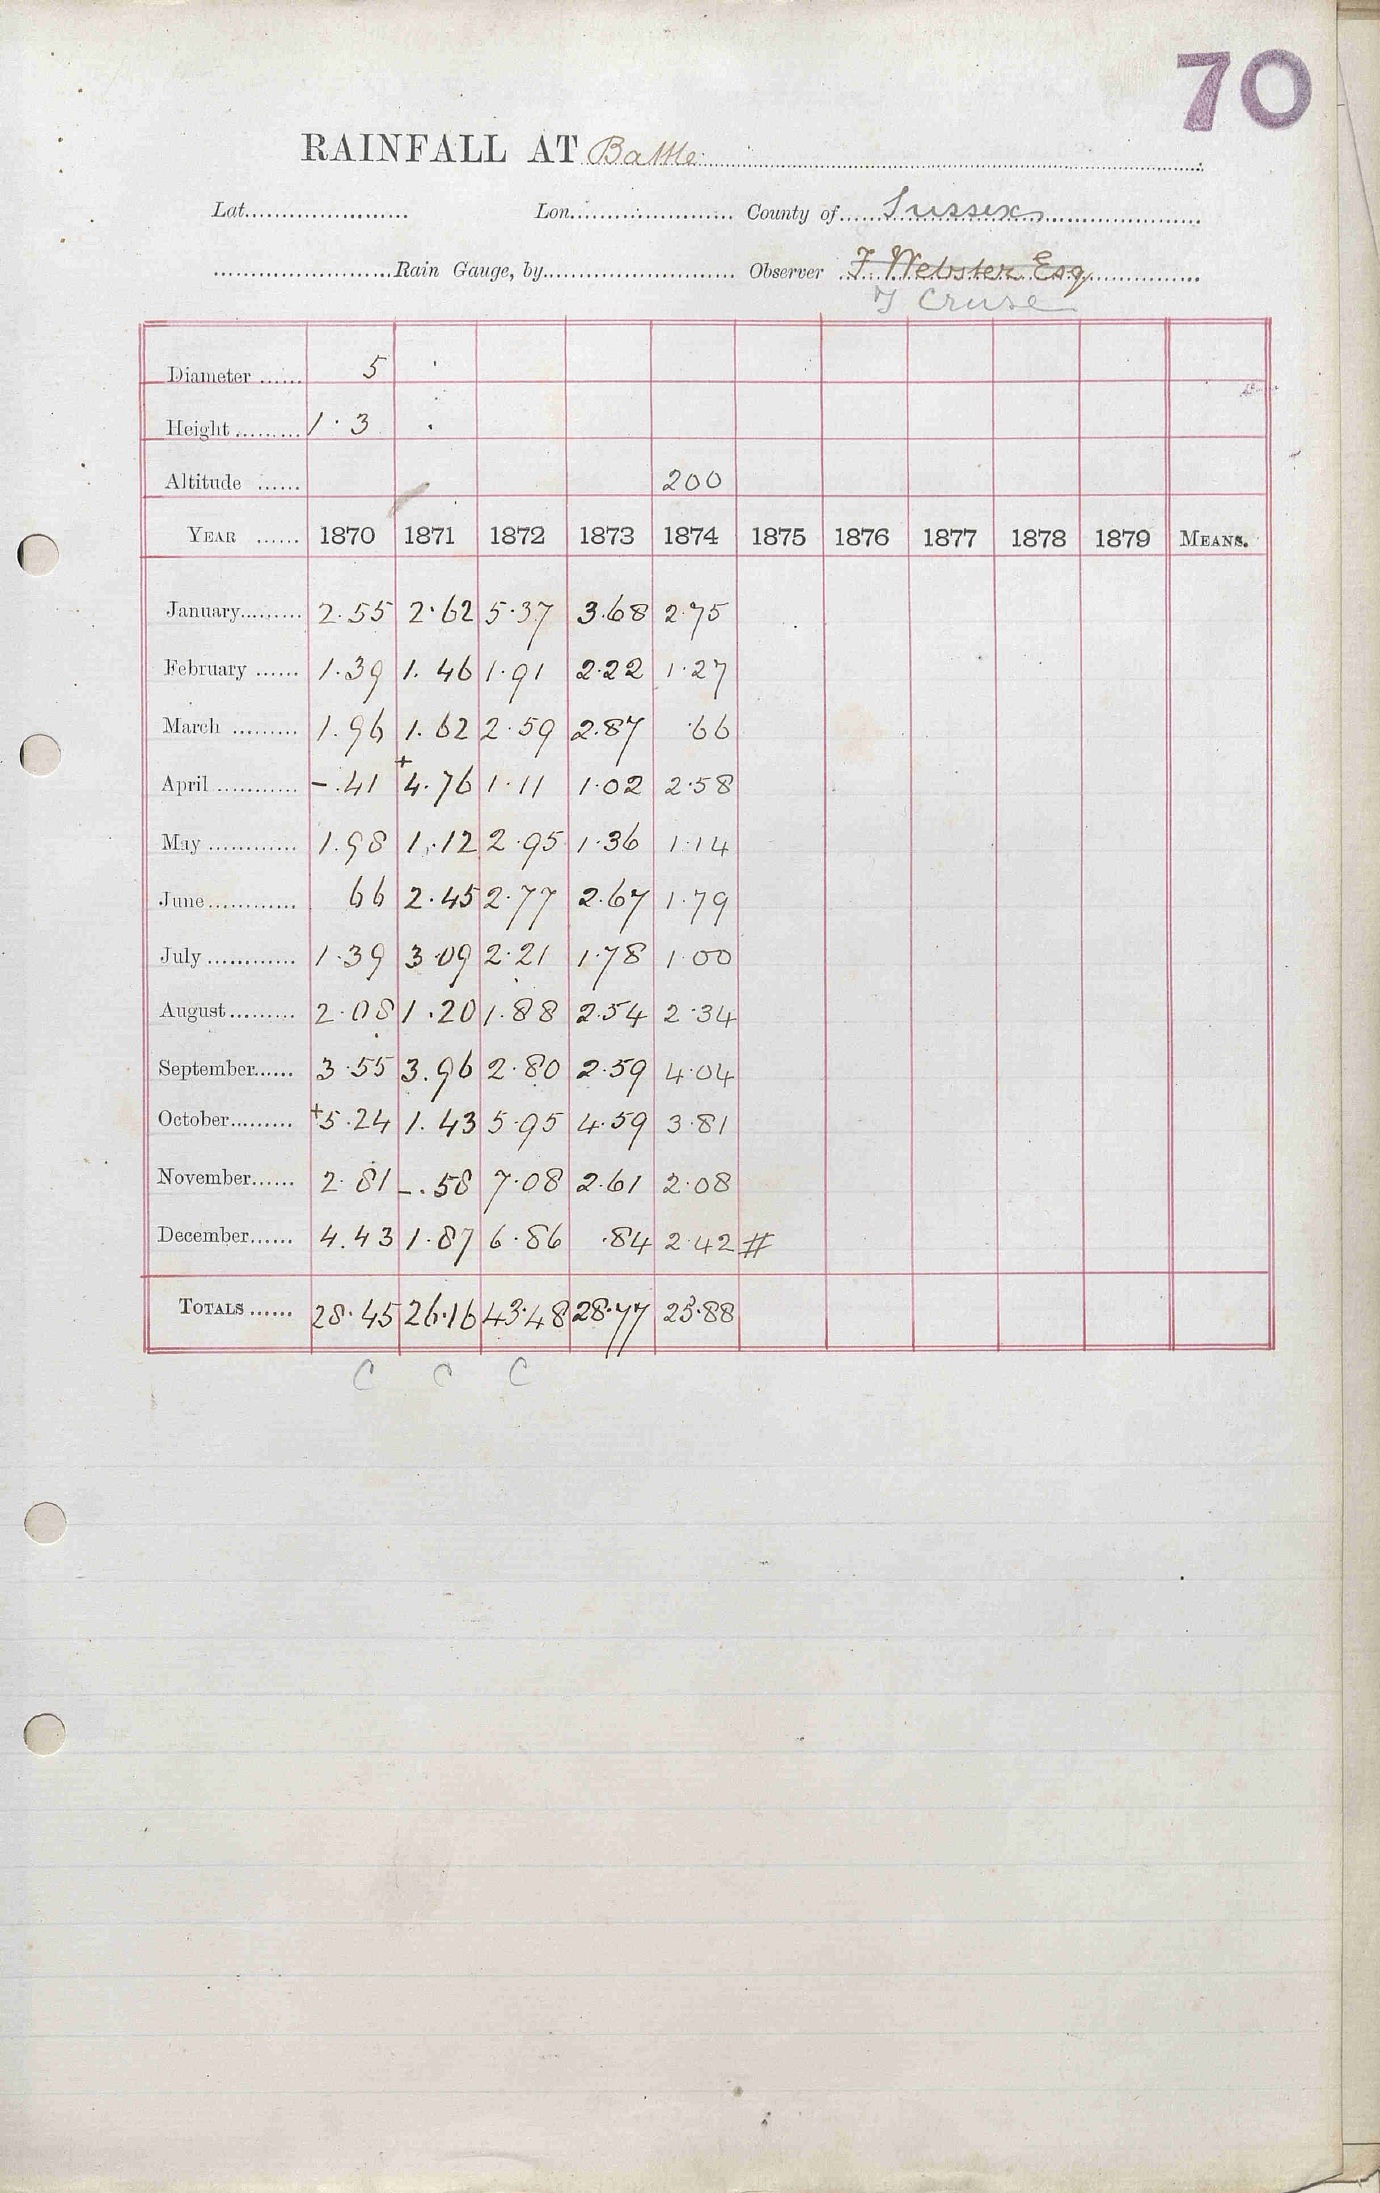 70
RAINFALL AT Battle
Lat. Lon. County of Sussex
Rain Gauge, by Observer F Webster Esq
F Cruse
Diameter 5
Height 1.3
Altitude 200
YEAR 1870 1871 1872 1873 1874 1875 1876 1877 1878 1879 MEANS.
January 2.55 2.62 5.37 3.68 2.75
February 1.39 1.46 1.91 2.22 1.27
March 1.96 1.62 2.59 2.87 .66
April -.41 +4.76 1.11 1.02 2.58
May 1.98 1.12 2.95 1.36 1.14
June 66 2.45 2.77 2.67 1.79
July 1.39 3.09 2.21 1.78 1.00
August 2.08 1.20 1.88 2.54 2.34
September 3.55 3.96 2.80 2.59 4.04
October +5.24 1.43 5.95 4.59 3.81
November 2.81 -.58 7.08 2.61 2.08
December 4.43 1.87 6.86 .84 2.42 #
TOTALS 28.45 26.16 43.48 28.77 25.88
C C C